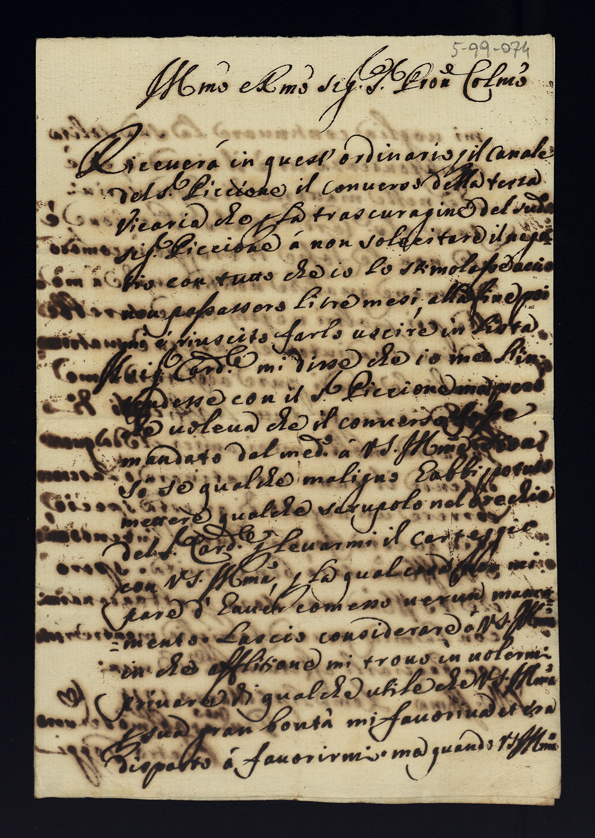 5-99-074
Illmo e Rmo Sig. S. Pron Colmo
Riceverà in quest'ordinario p il canale
del S. Piccione il converso della terza
Vicaria che p la trascuragine del sud
Sig. Piccione à non solecitare il nego
tio con tutto che io lo stimolasse acciò
non passassero li tre mesi alla fine poi
è riuscito farlo uscire in Lista
Il Sig. Card.e mi disse che io me
desse con il S. Piccione
se voleva che il converso fosse
mandato dal med. à VS. Illma
so se qualche maligno habbi potuto
mettere qualche scrupolo nel orechie
del S. Card.e p levarmi il carteggio
con VS. Illma, p la qual non mi
pare d'haver comesso verun manca
mento. Lascio considerare à VS Illma
in che afflitione mi trovo in volermi
privare di qualche utile che VS Illma
p sua gran bontà mi favoriva et era
disposto à favorirmi. ma quando VS Illma